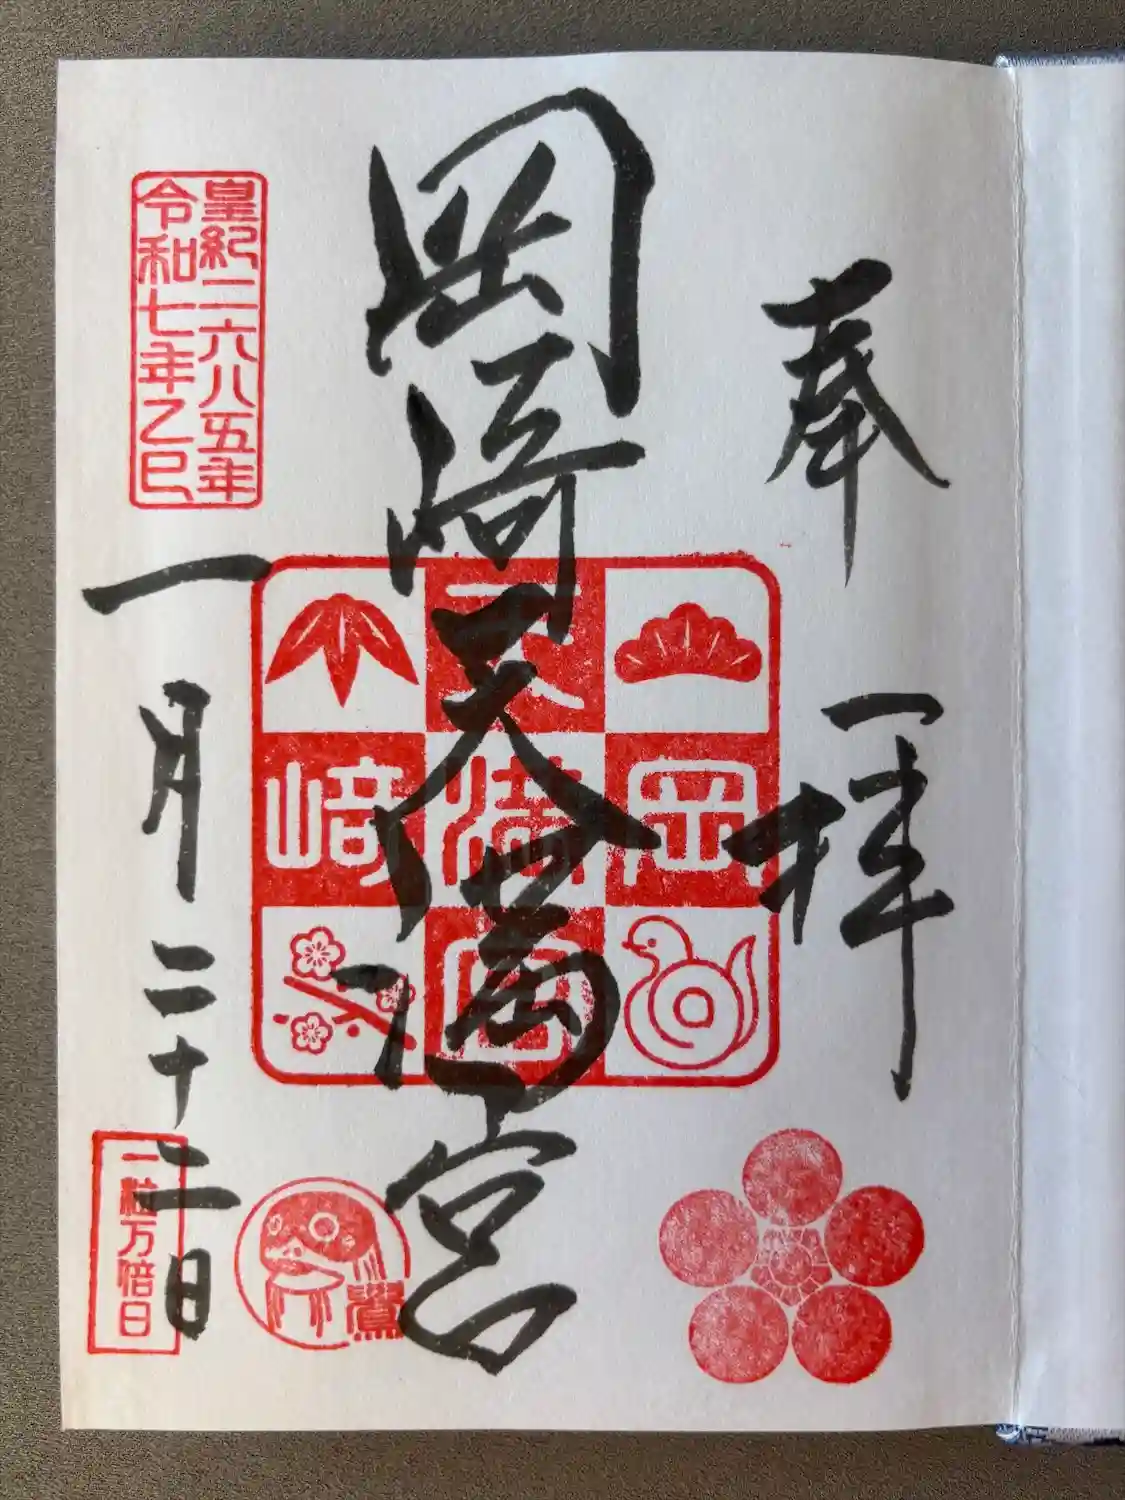 奉拝
岡崎天満宮
皇紀二六八五年
令和七年乙巳
一月二十二日
岡
天満宮
崎
一粒万倍日
鷽